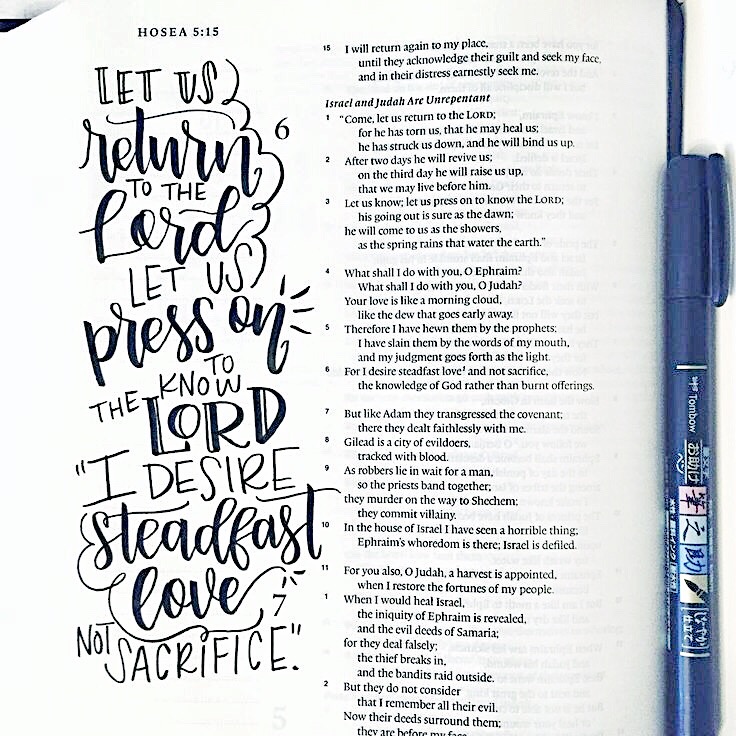 HOSEA 5:15
LET US
return
TO THE
Lord
LET US
press on
TO
KNOW
THE LORD
"I DESIRE
steadfast
love
NOT SACRIFICE".
15 I will return again to my place,
until they acknowledge their guilt and seek my face,
and in their distress earnestly seek me.
Israel and Judah Are Unrepentant
6
1 "Come, let us return to the LORD;
for he has torn us, that he may heal us;
he has struck us down, and he will bind us up.
2 After two days he will revive us;
on the third day he will raise us up,
that we may live before him.
3 Let us know; let us press on to know the LORD;
his going out is sure as the dawn;
he will come to us as the showers,
as the spring rains that water the earth."
4 What shall I do with you, O Ephraim?
What shall I do with you, O Judah?
Your love is like a morning cloud,
like the dew that goes early away.
5 Therefore I have hewn them by the prophets;
I have slain them by the words of my mouth,
and my judgment goes forth as the light.
6 For I desire steadfast love¹ and not sacrifice,
the knowledge of God rather than burnt offerings.
7 But like Adam they transgressed the covenant;
there they dealt faithlessly with me.
8 Gilead is a city of evildoers,
tracked with blood.
9 As robbers lie in wait for a man,
so the priests band together;
they murder on the way to Shechem;
they commit villainy.
10 In the house of Israel I have seen a horrible thing;
Ephraim's whoredom is there; Israel is defiled.
11 For you also, O Judah, a harvest is appointed,
when I restore the fortunes of my people.
7
1 When I would heal Israel,
the iniquity of Ephraim is revealed,
and the evil deeds of Samaria;
for they deal falsely;
the thief breaks in,
and the bandits raid outside.
2 But they do not consider
that I remember all their evil.
Now their deeds surround them;
they are before my face.
Tombow
筆之助